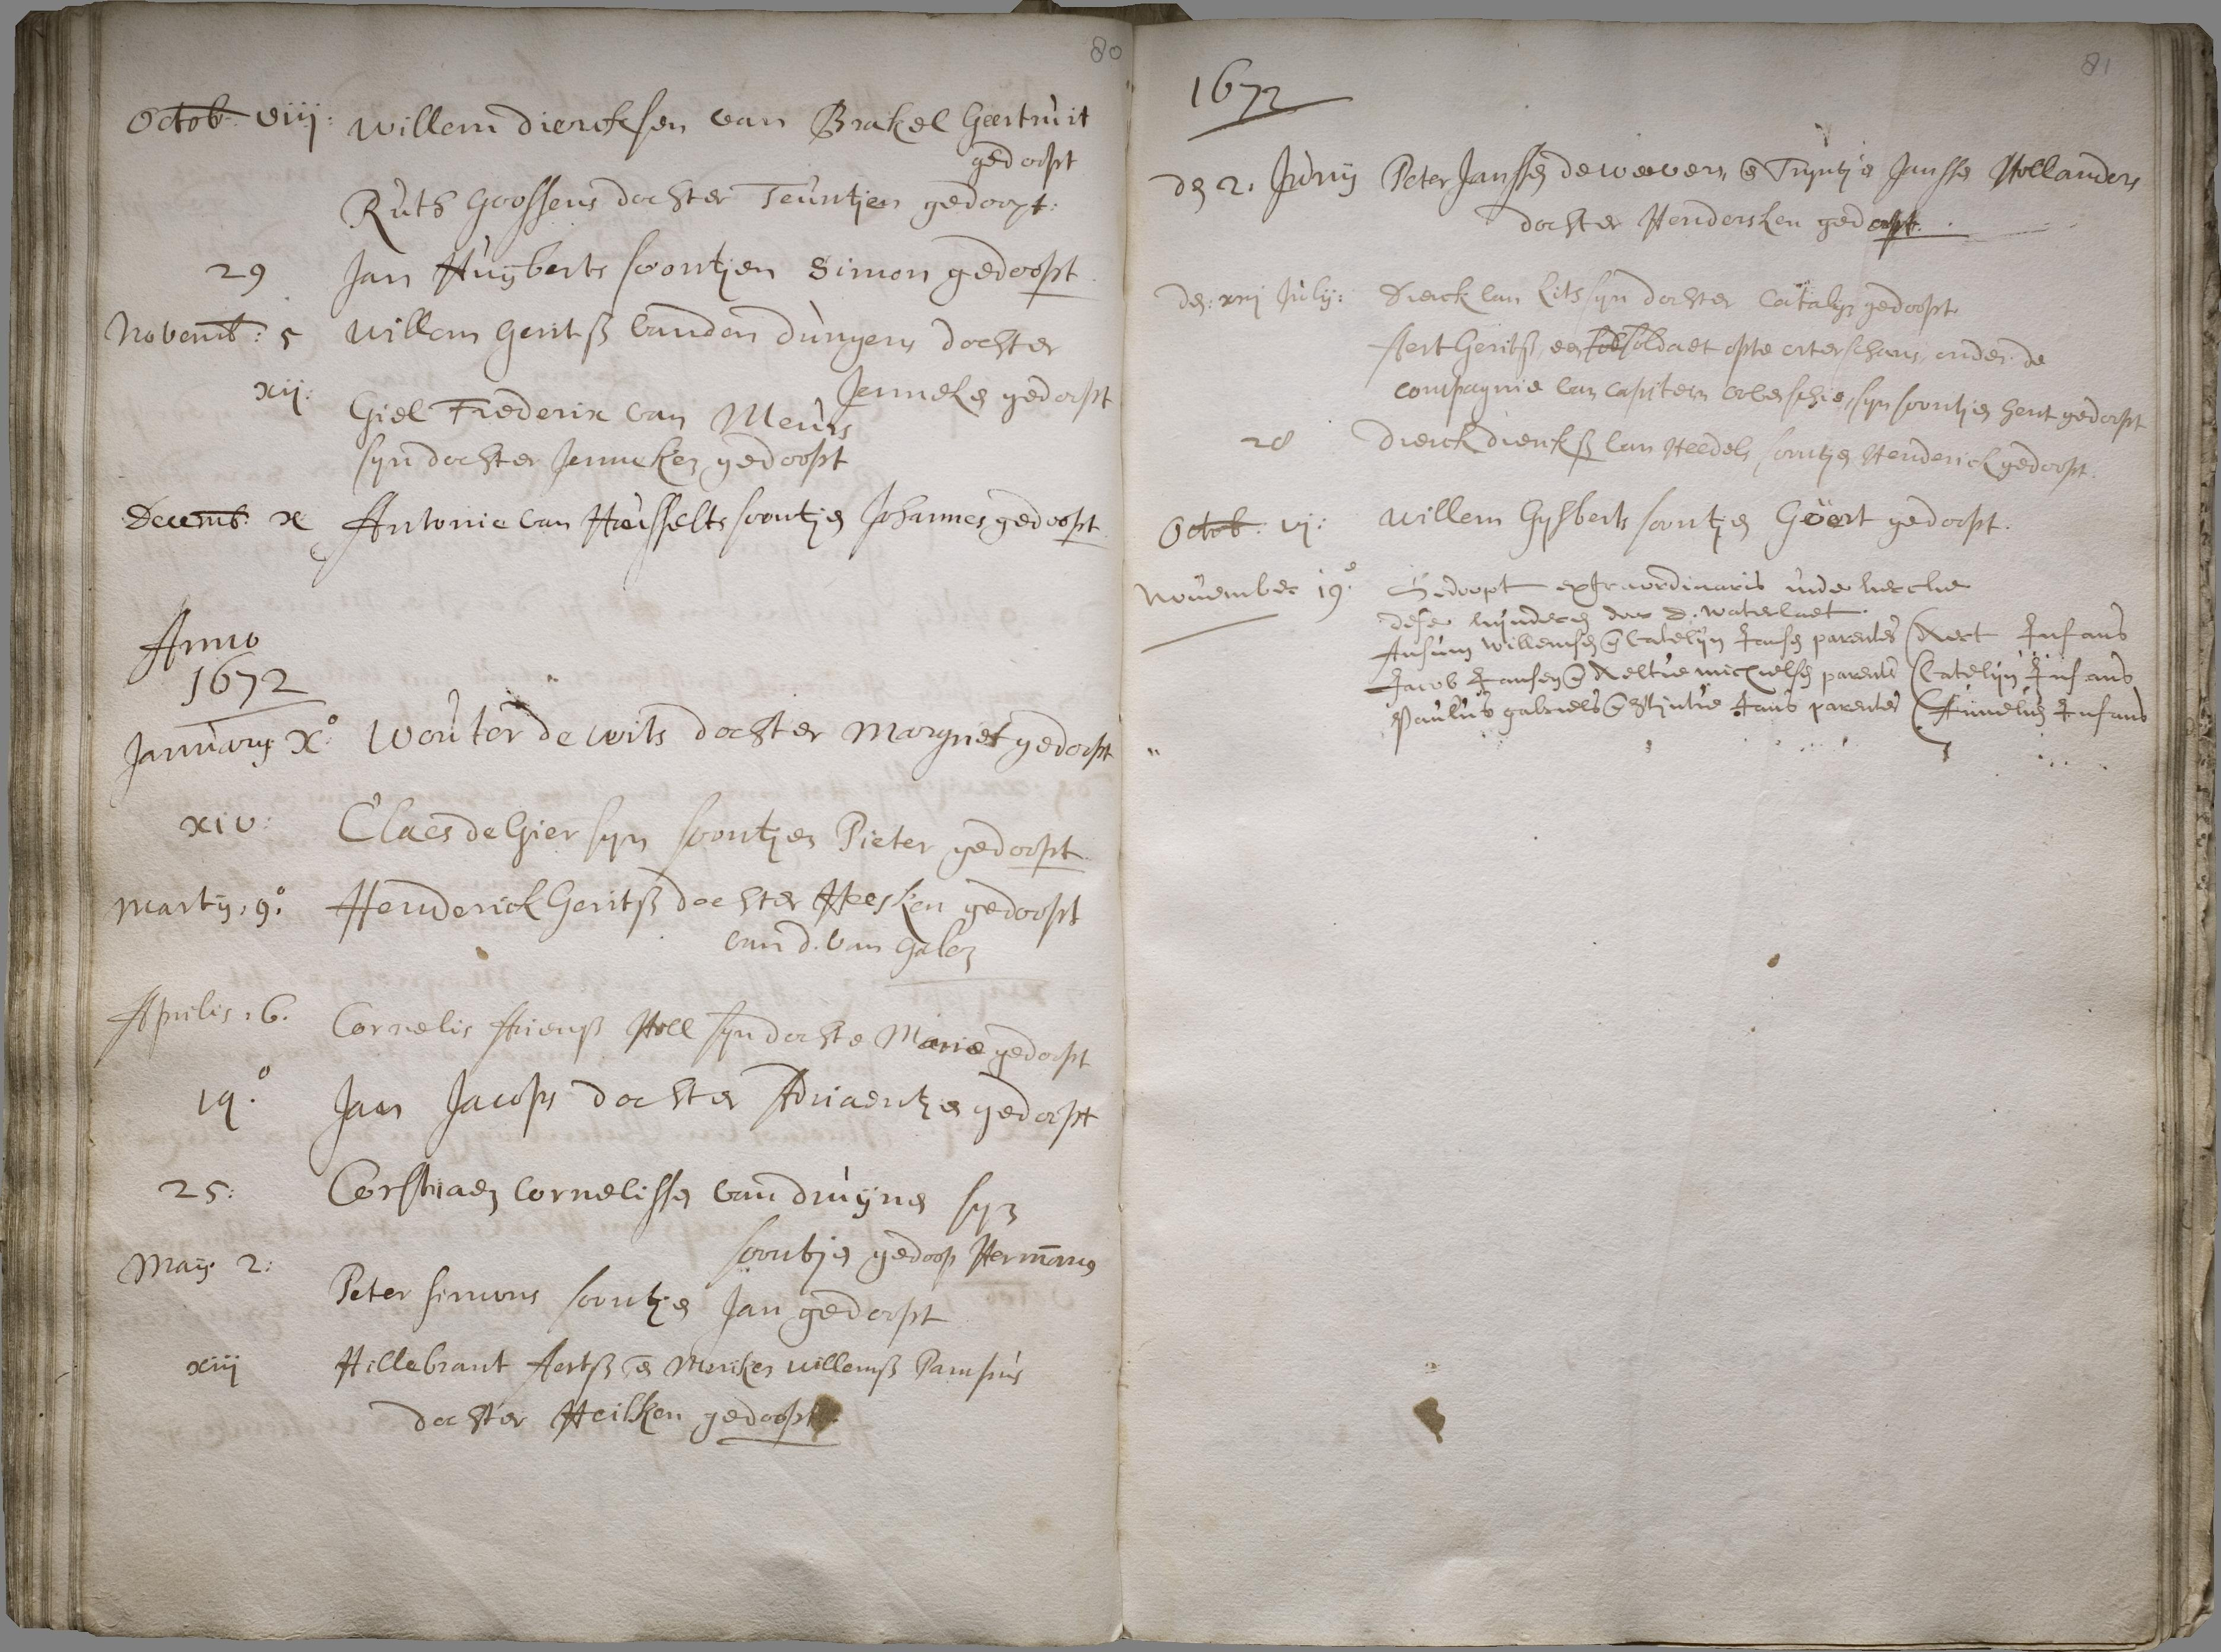 80
Octob. viij: Willem dierckſen van Brakel Geertruit
gedoopt
Ruth Gooſſens dochter Teuntjen gedoopt:
29 Jan Huÿberts soontjen Simon gedoopt
Novemb: 5 Willem Geritß vanden dungens dochter
Jenneken gedoopt
xij: Giel Frederix van Meurs
syn dochter Jenneken gedoopt
Decemb. x Antonie van Hasselts soontjen Johannes gedoopt
Anno
1672
January X° Wouter de wits dochter Margriet gedoopt
xiv: Claes de Gier syn soontjen Pieter gedoopt
Martij. 9° Henderick Geritß dochter Heesken gedoopt
van d. van Galen
Aprilis. 6. Cornelis Arienß Holl syn dochte Marie gedoopt
19° Jan Jacops dochter Adriaentjen gedoopt
25: Corstiaen Cornelissen van druÿnen syn
soontjen gedoop Hermanus
Maij 2: Peter simons soontjen Jan gedoopt
xiij Hillebrant Aertß en Meriken willemß Pampus
dochter Heilken gedoopt.
81
1672
den 2. Junij Peter Janssen de wevers en Tryntjen Janssen Hollanders
dochter Hendersken gedoopt.
den: xxj July: Dierck van Lits syn dochter Catalyn gedoopt
Aert Geritß, een soldaet opte orterschans, onder de
compagnie van capitein syn soontjen Gerit gedoopt
28 Dierck dierckß van Heedels soontjen Henderick gedoopt.
Octob. vj: Willem Gysberts soontjen Goert gedoopt.
November 19° Gedoopt extraordinaris inde kercke
dese kinderen door D. Waterlaet.
Ansum Willemsen en Catelijn Jansen parentes (Aert Infans
Jacob Jansen en Neeltie micchielsen parentes (Catelijn Infans
Paulus gabriels en Stijntie Jans parentes (Infans